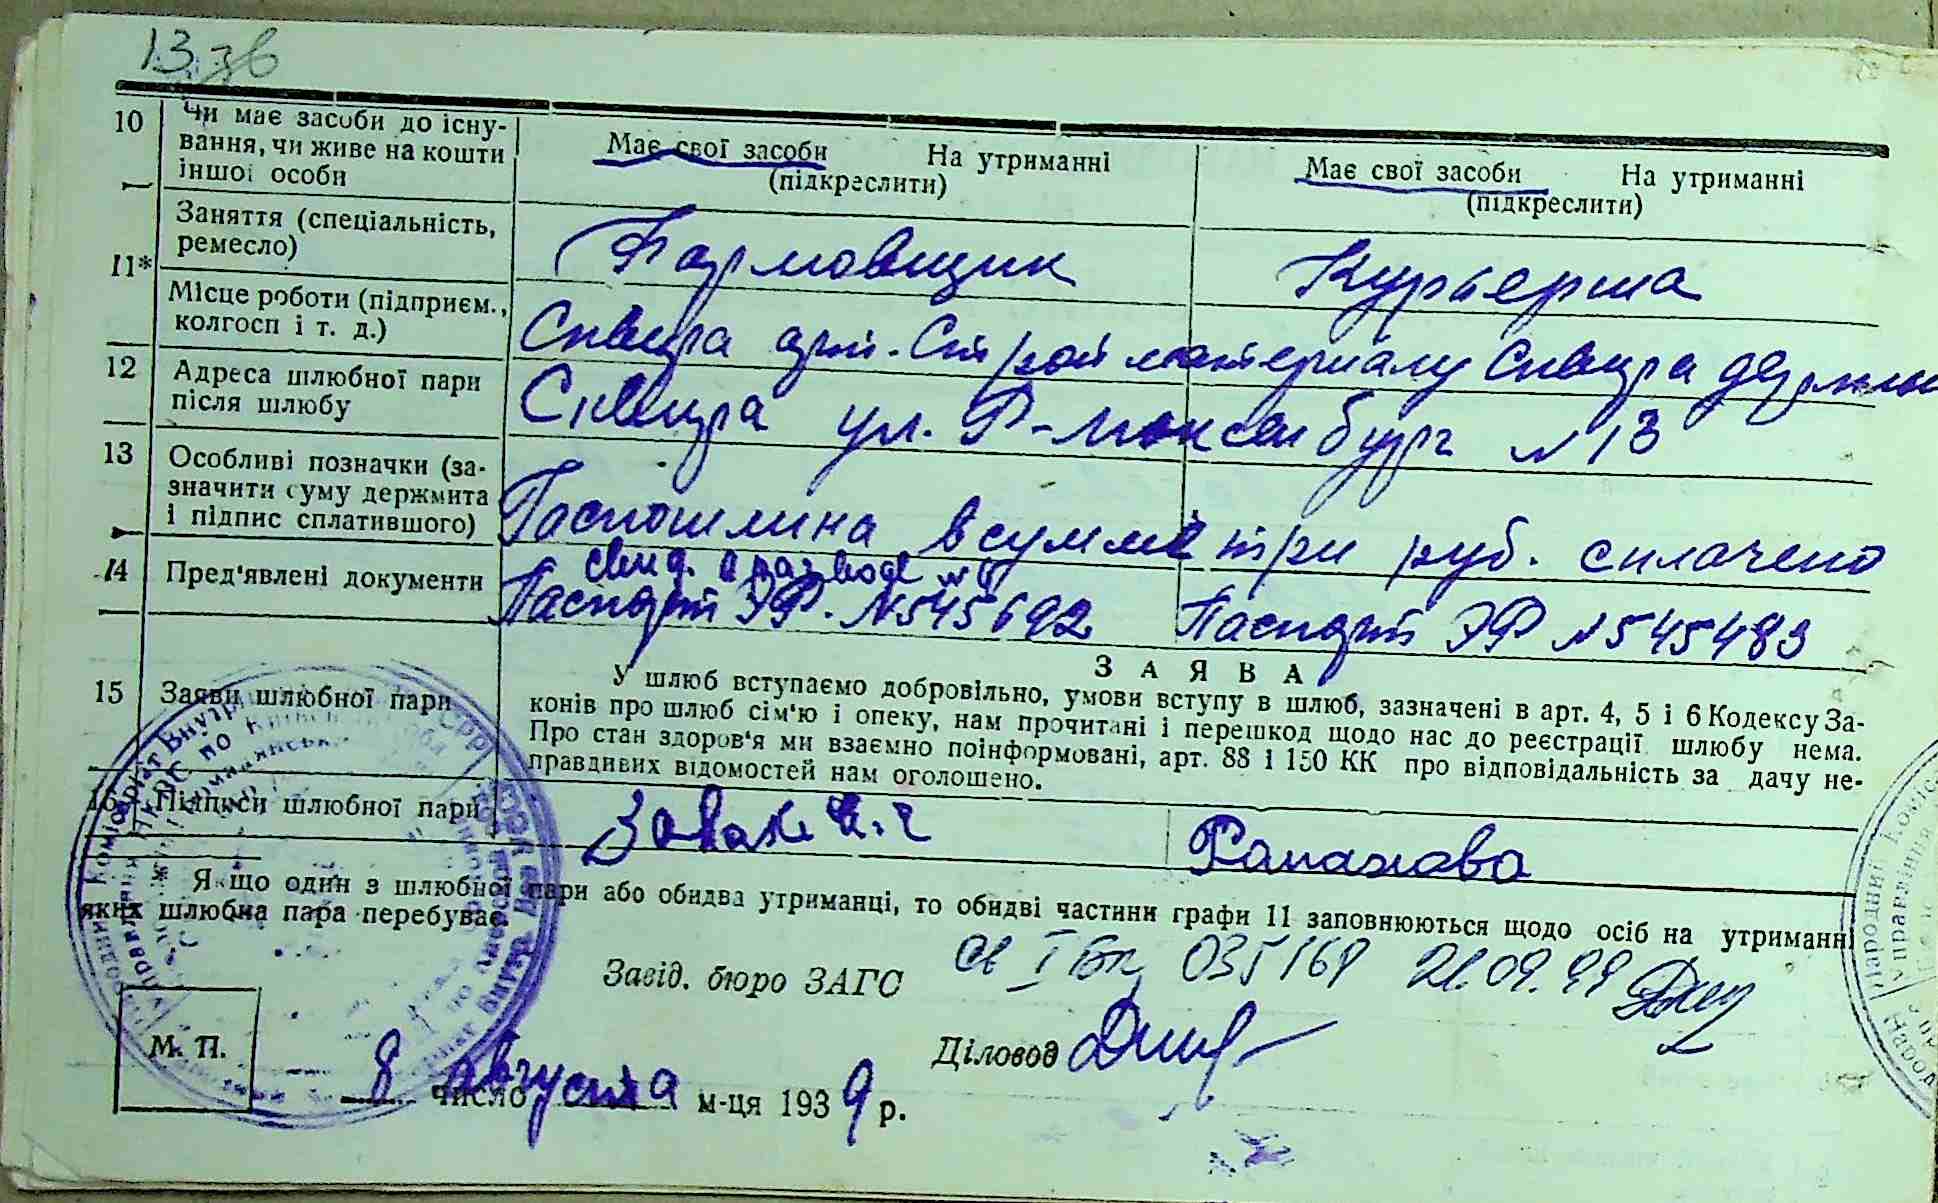 13 зв
10 Чи має засоби до існу-
вання, чи живе на кошти
іншої особи
Має свої засоби На утриманні
(підкреслити)
Має свої засоби На утриманні
(підкреслити)
11* Заняття (спеціальність,
ремесло)
Формовщик
Курьерша
Місце роботи (підприєм.,
колгосп і т. д.)
Сквира арт. Стройматериалу Сквира
12 Адреса шлюбної пари
після шлюбу
Сквира ул. Р-Люксембург №13
13 Особливі позначки (за-
значити суму держмита
і підпис сплатившого)
Госпошлина в сумме три руб. сплачено
14 Пред'явлені документи
свид. о разводе №
Паспорт ЭФ. №545692 Паспорт ЭФ №545483
15 Заяви шлюбної пари
ЗАЯВА
У шлюб вступаємо добровільно, умови вступу в шлюб, зазначені в арт. 4, 5 і 6 Кодексу За-
конів про шлюб сім'ю і опеку, нам прочитані і перешкод щодо нас до реєстрації шлюбу нема.
Про стан здоров'я ми взаємно поінформовані, арт. 88 і 150 КК про відповідальність за дачу не-
правдивих відомостей нам оголошено.
16 Підписи шлюбної пари
* Якщо один з шлюбної пари або обидва утриманці, то обидві частини графи 11 заповнюються щодо осіб на утриманні
яких шлюбна пара перебуває.
Завід. бюро ЗАГС
21.09.99
М. П.
Діловод
8 число августа м-ця 1939 р.